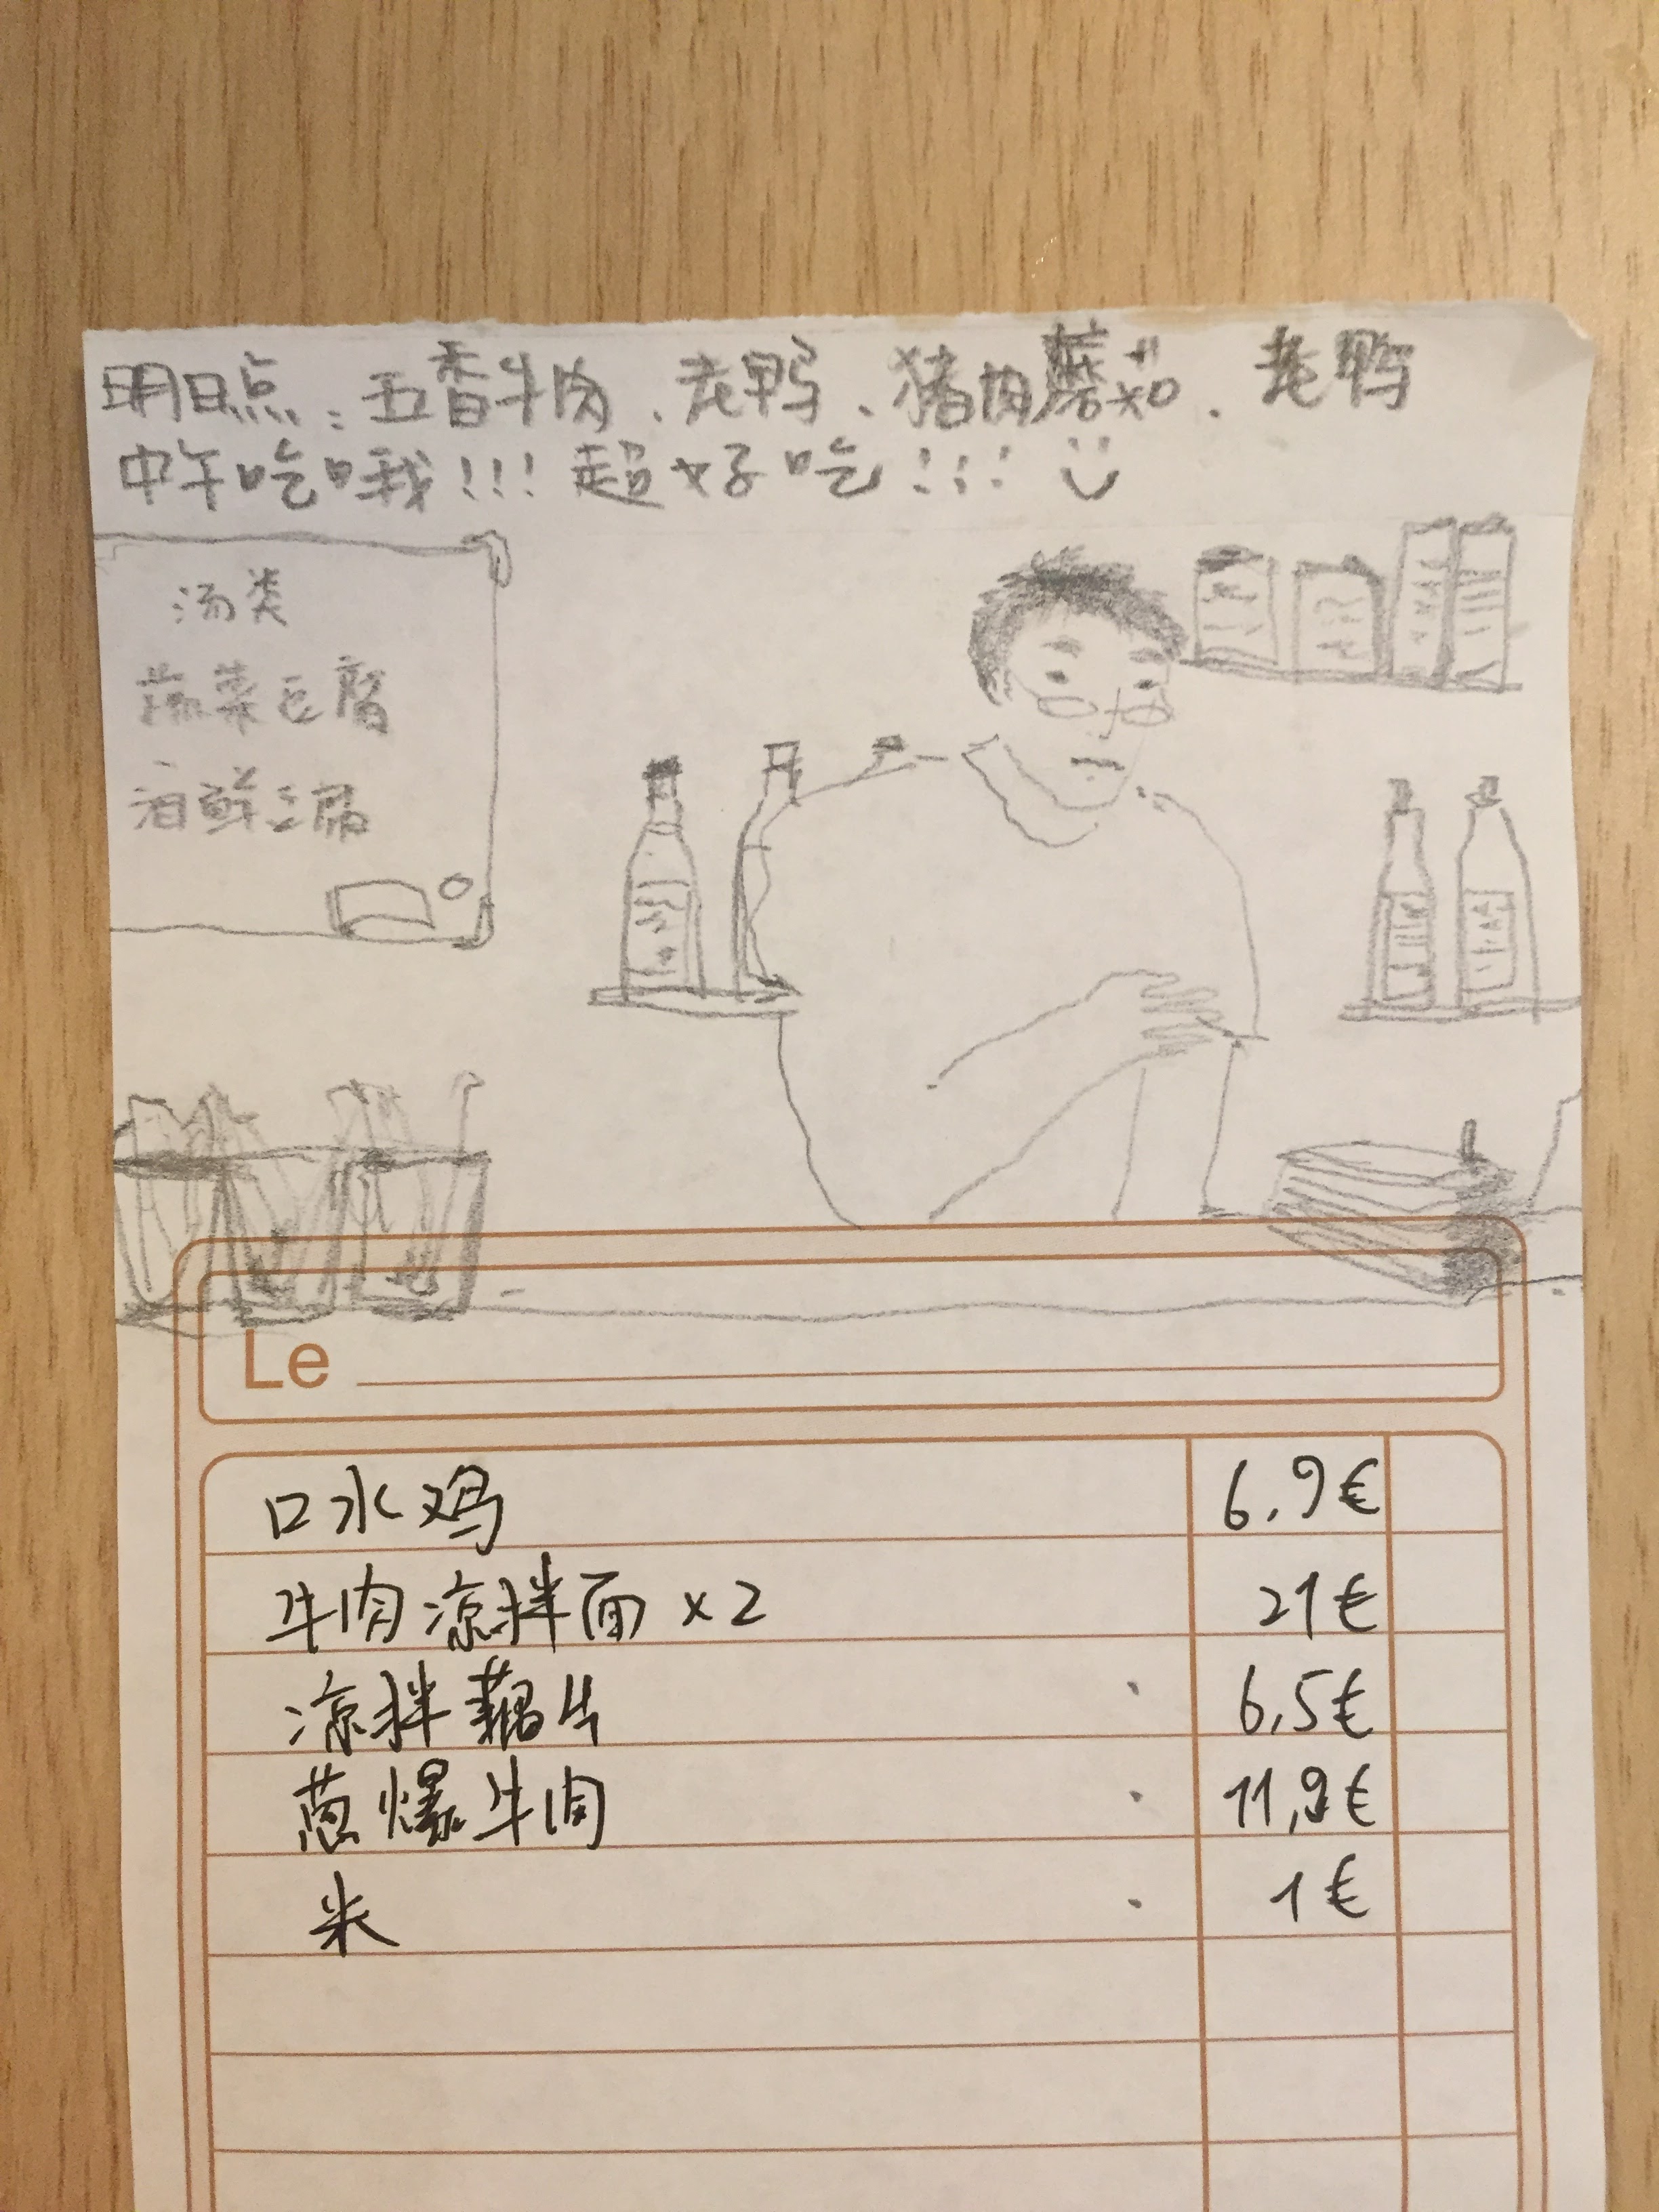 明日点：五香牛肉、老鸭、猪肉蘑菇、老鸭
中午吃哦!!! 超好吃!!!
汤类
蔬菜豆腐
海鲜豆腐
Le
口水鸡 6,9€
牛肉凉拌面 x2 21€
凉拌藕片 6,5€
葱爆牛肉 11,9€
米 1€